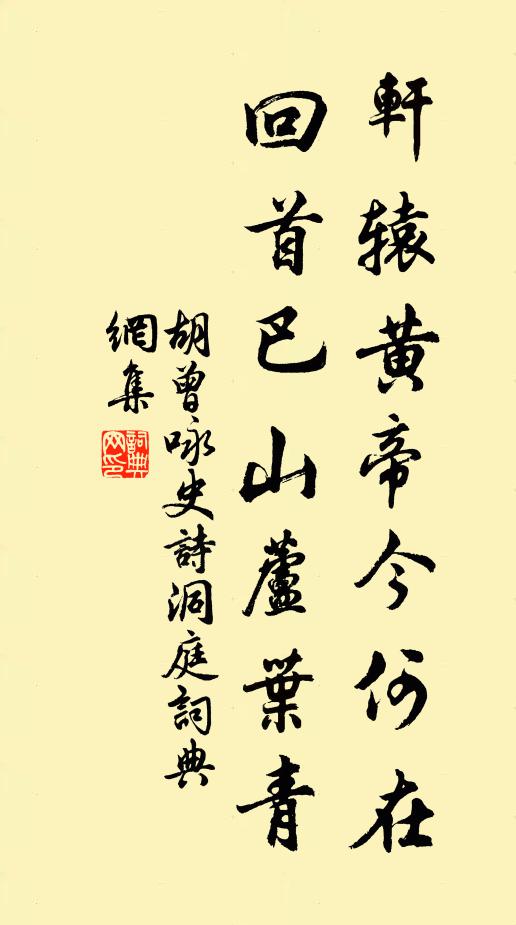 軒轅黃帝今何在
回首巴山蘆葉青
胡曾咏史詩洞庭詞典
網集
詞典
网印